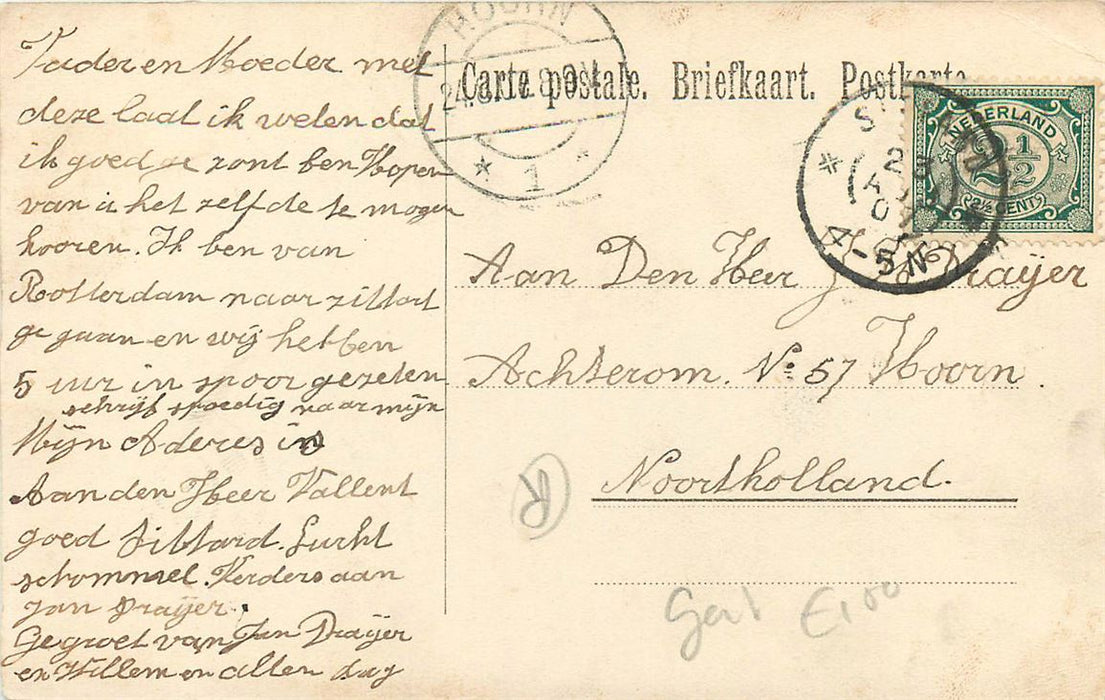 Vader en Moeder met
deze laat ik weten dat
ik goed ge zont ben Hopen
van u het zelf de te mogen
hooren. Ik ben van
Rootterdam naar zittart
ge gaan en wij hebben
5 uur in spoor gezeten
schrijf spoedig naar mijn
Mijn Aderes is
Aan den Heer Vallent
goed Sittard. Lucht
schommsel. Verders aan
Jan Draijer.
Gegroet van Jan Draijer
en Willem en allen dag
HOORN
8-9V
1
Carte postale. Briefkaart. Postkarte
NEDERLAND
2½
2½ CENT
4-5N
Aan Den Heer J Draijer
Achterom. No 57 Hoorn.
Noortholland.
R
€1,00